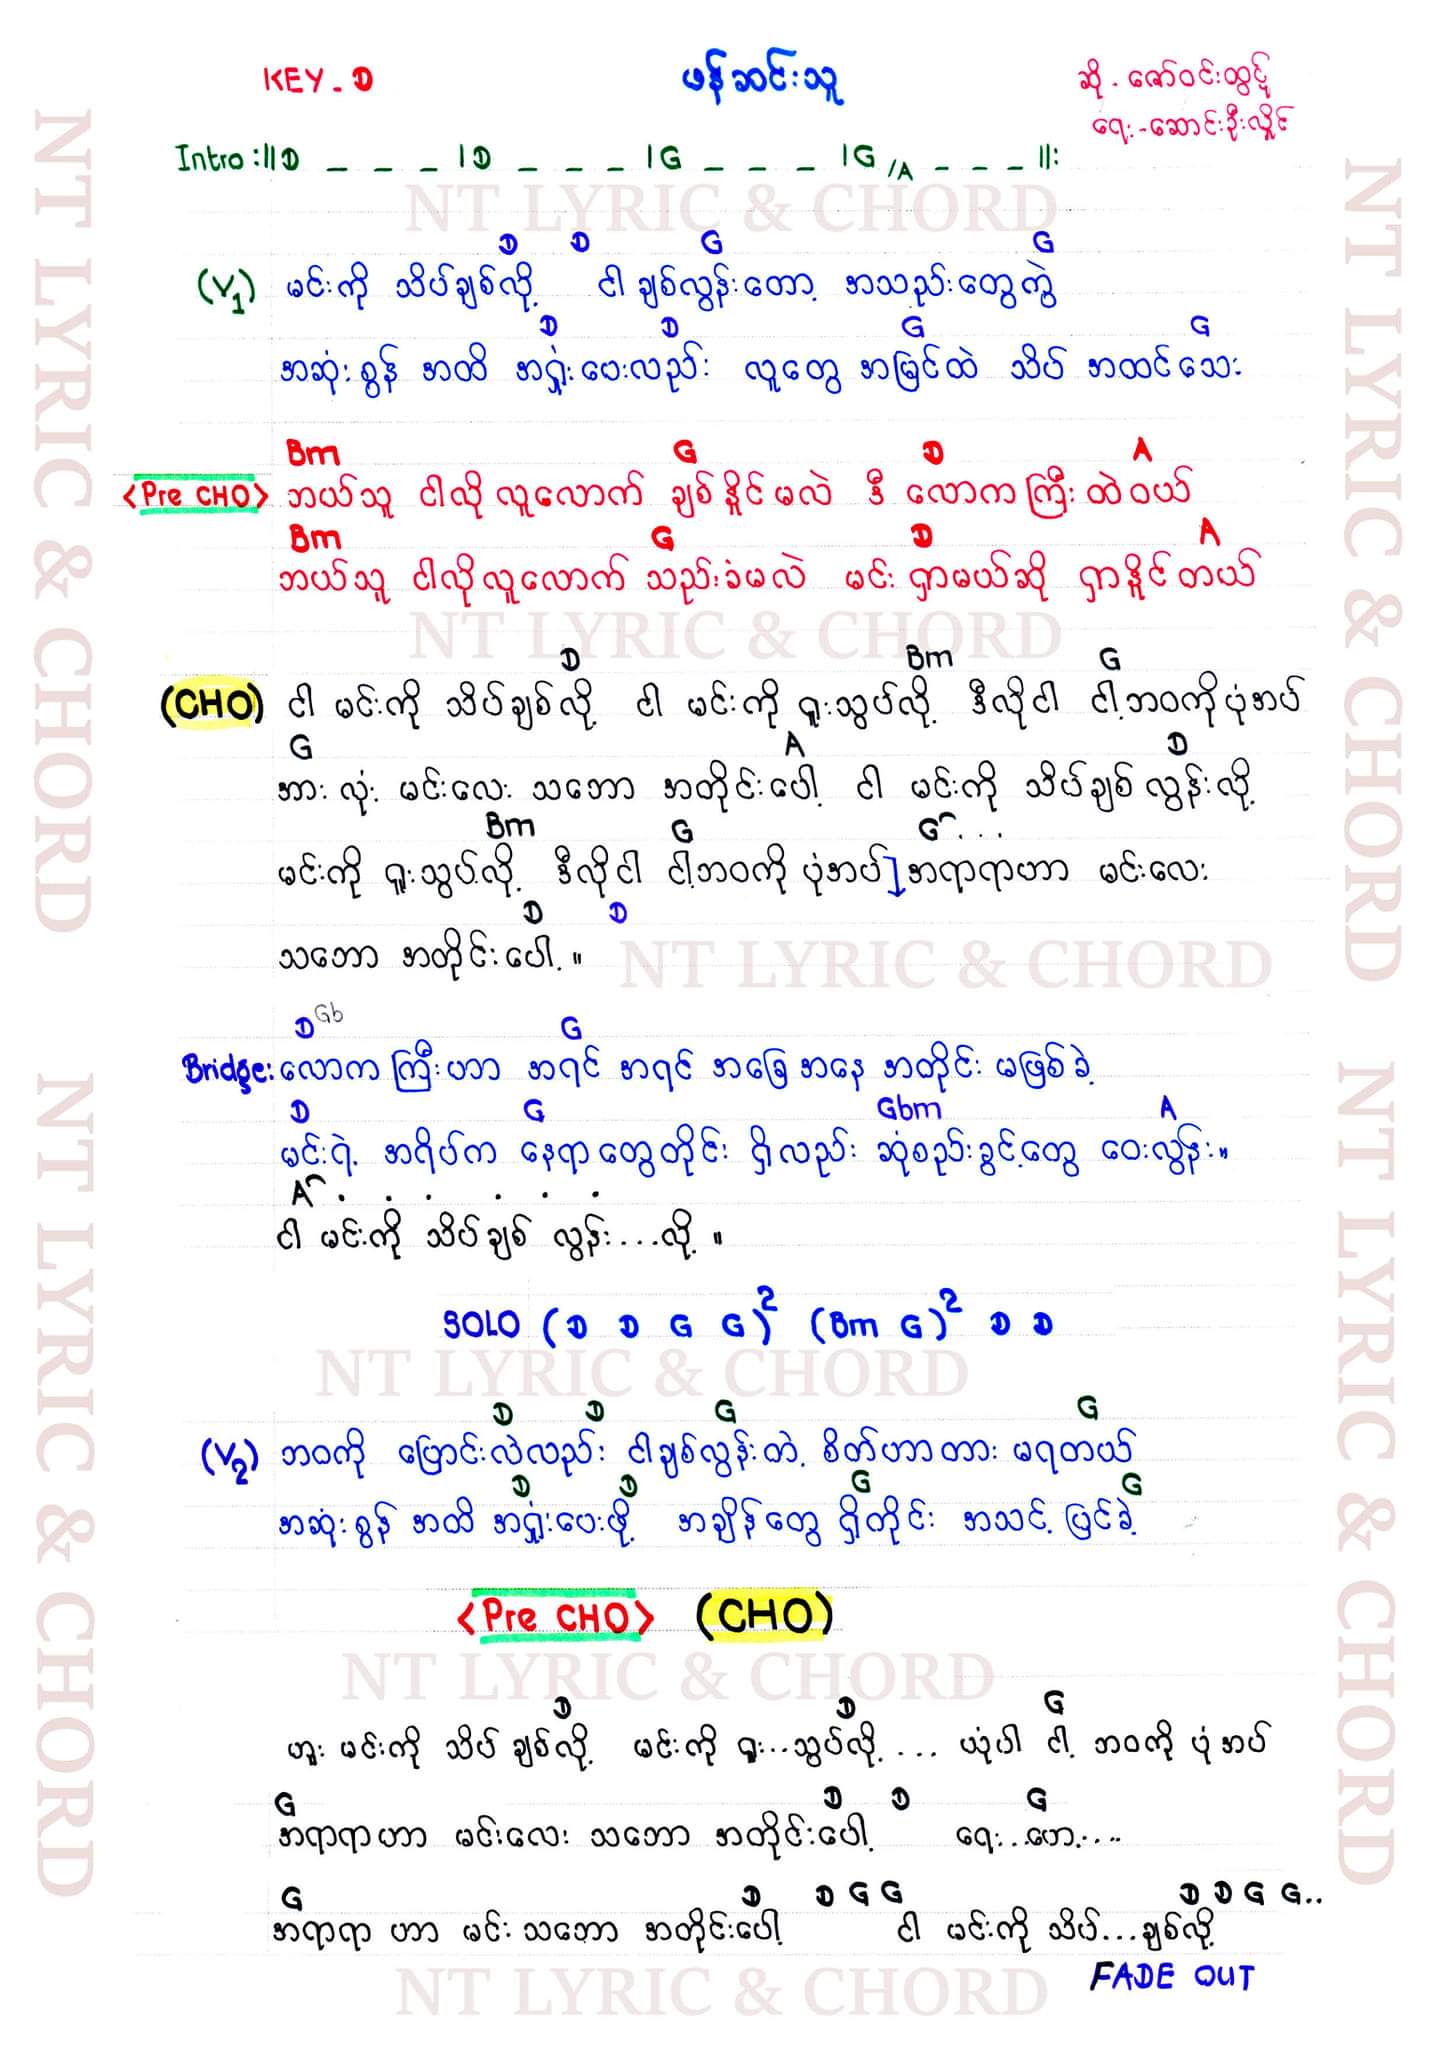 KEY - D
ဖန်ဆင်းသူ
ဆို - ဇော်ဝင်းထွဋ်
ရေး - ဆောင်းဦးလှိုင်
Intro :|| D _ _ _ | D _ _ _ | G _ _ _ | G /A _ _ _ ||:
NT LYRIC & CHORD
D D G G
(V1) မင်းကို သိပ်ချစ်လို့ ငါ ချစ်လွန်းတော့ အသည်းတွေကွဲ
D D G G
အဆုံးစွန် အထိ အရှုံးပေးလည်း လူတွေ အမြင်ထဲ သိပ် အထင်သေး
Bm G D A
<Pre CHO> ဘယ်သူ ငါလို လူလောက် ချစ်နိုင်မလဲ ဒီ လောကကြီးထဲဝယ်
Bm G D A
ဘယ်သူ ငါလိုလူလောက် သည်းခံမလဲ မင်း ရှာမယ်ဆို ရှာနိူင်တယ်
NT LYRIC & CHORD
D Bm G
(CHO) ငါ မင်းကို သိပ်ချစ်လို့ ငါ မင်းကို ရူးသွပ်လို့ ဒီလိုငါ ငါ့ဘဝကိုပုံအပ်
G A D
အားလုံး မင်းလေး သဘော အတိုင်းပေါ့ ငါ မင်းကို သိပ်ချစ် လွန်းလို့
Bm G G^...
မင်းကို ရူးသွပ်လို့ ဒီလိုငါ ငါ့ဘဝကို ပုံအပ်] အရာရာဟာ မင်းလေး
D D
သဘော အတိုင်းပေါ့။
NT LYRIC & CHORD
D Gb G
Bridge: လောကကြီးဟာ အရင် အရင် အခြေအနေ အတိုင်း မဖြစ်ခဲ့
D G Gbm A
မင်းရဲ့ အရိပ်က နေရာတွေတိုင်း ရှိလည်း ဆုံစည်းခွင့်တွေ ဝေးလွန်း။
A^ . . . . . .
ငါ မင်းကို သိပ်ချစ် လွန်း...လို့။
SOLO (D D G G)2 (Bm G)2 D D
NT LYRIC & CHORD
D D G G
(V2) ဘဝကို ပြောင်းလဲလည်း ငါချစ်လွန်းတဲ့ စိတ်ဟာတား မရတယ်
D D G G
အဆုံးစွန် အထိ အရှုံးပေးဖို့ အချိန်တွေ ရှိတိုင်း အသင့် ပြင်ခဲ့
<Pre CHO> (CHO)
NT LYRIC & CHORD
D D G
ဟူး မင်းကို သိပ် ချစ်လို့ မင်းကို ရူး...သွပ်လို့.... ယုံပါ ငါ့ ဘဝကို ပုံအပ်
G D D G
အရာရာဟာ မင်းလေး သဘော အတိုင်းပေါ့ ရေး..ဟေ့....
G D D G G D D G G..
အရာရာ ဟာ မင်း သဘော အတိုင်းပေါ့ ငါ မင်းကို သိပ်...ချစ်လို့
FADE OUT
NT LYRIC & CHORD
NT LYRIC & CHORD
NT LYRIC & CHORD
NT LYRIC & CHORD
NT LYRIC & CHORD